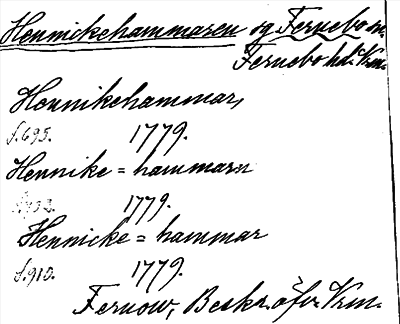 Hennickehammaren sg Fernebo sn.
Fernebo hd. Vrm.
Hennikehammar,
s. 695. 1779.
Hennike=hammarn
1779.
Hennicke=hammar
s. 910. 1779.
Fernow, Beskr. öfv. Vrm.